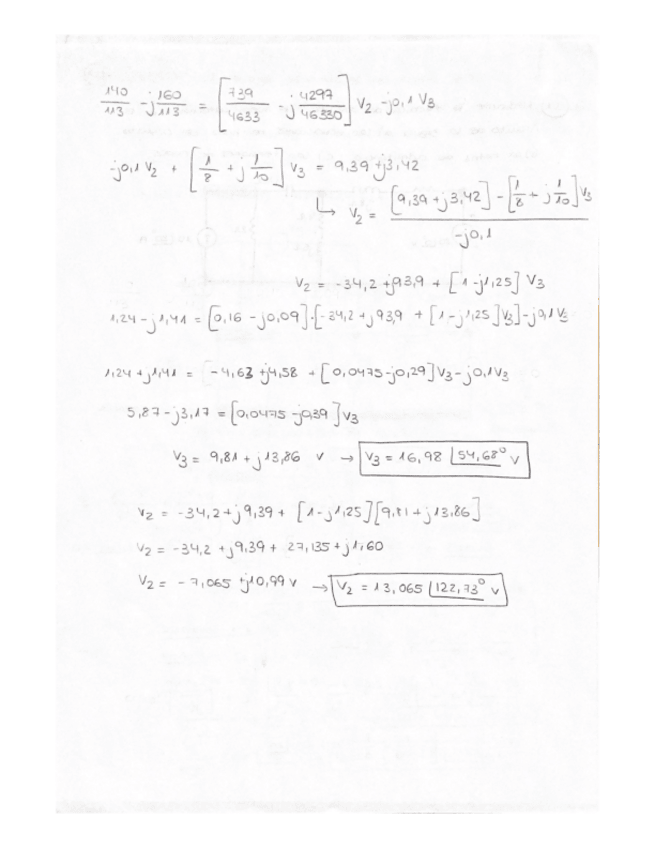 140/113 - j 160/113 = [739/4633 - j 4297/46330] V2 - j0,1 V3
-j0,1 V2 + [1/8 + j 1/10] V3 = 9,39 + j3,42
↳ V2 = ([9,39 + j3,42] - [1/8 + j 1/10] V3) / -j0,1
V2 = -34,2 + j93,9 + [1 - j1,25] V3
1,24 - j1,41 = [0,16 - j0,09]·[-34,2 + j93,9 + [1 - j1,25] V3] - j0,1 V3
1,24 + j1,41 = -4,63 + j4,58 + [0,0475 - j0,29] V3 - j0,1 V3
5,87 - j3,17 = [0,0475 - j0,39] V3
V3 = 9,81 + j13,86 V → V3 = 16,98 ∠54,68° V
V2 = -34,2 + j9,39 + [1 - j1,25][9,81 + j13,86]
V2 = -34,2 + j9,39 + 27,135 + j1,60
V2 = -7,065 + j10,99 V → V2 = 13,065 ∠122,73° V